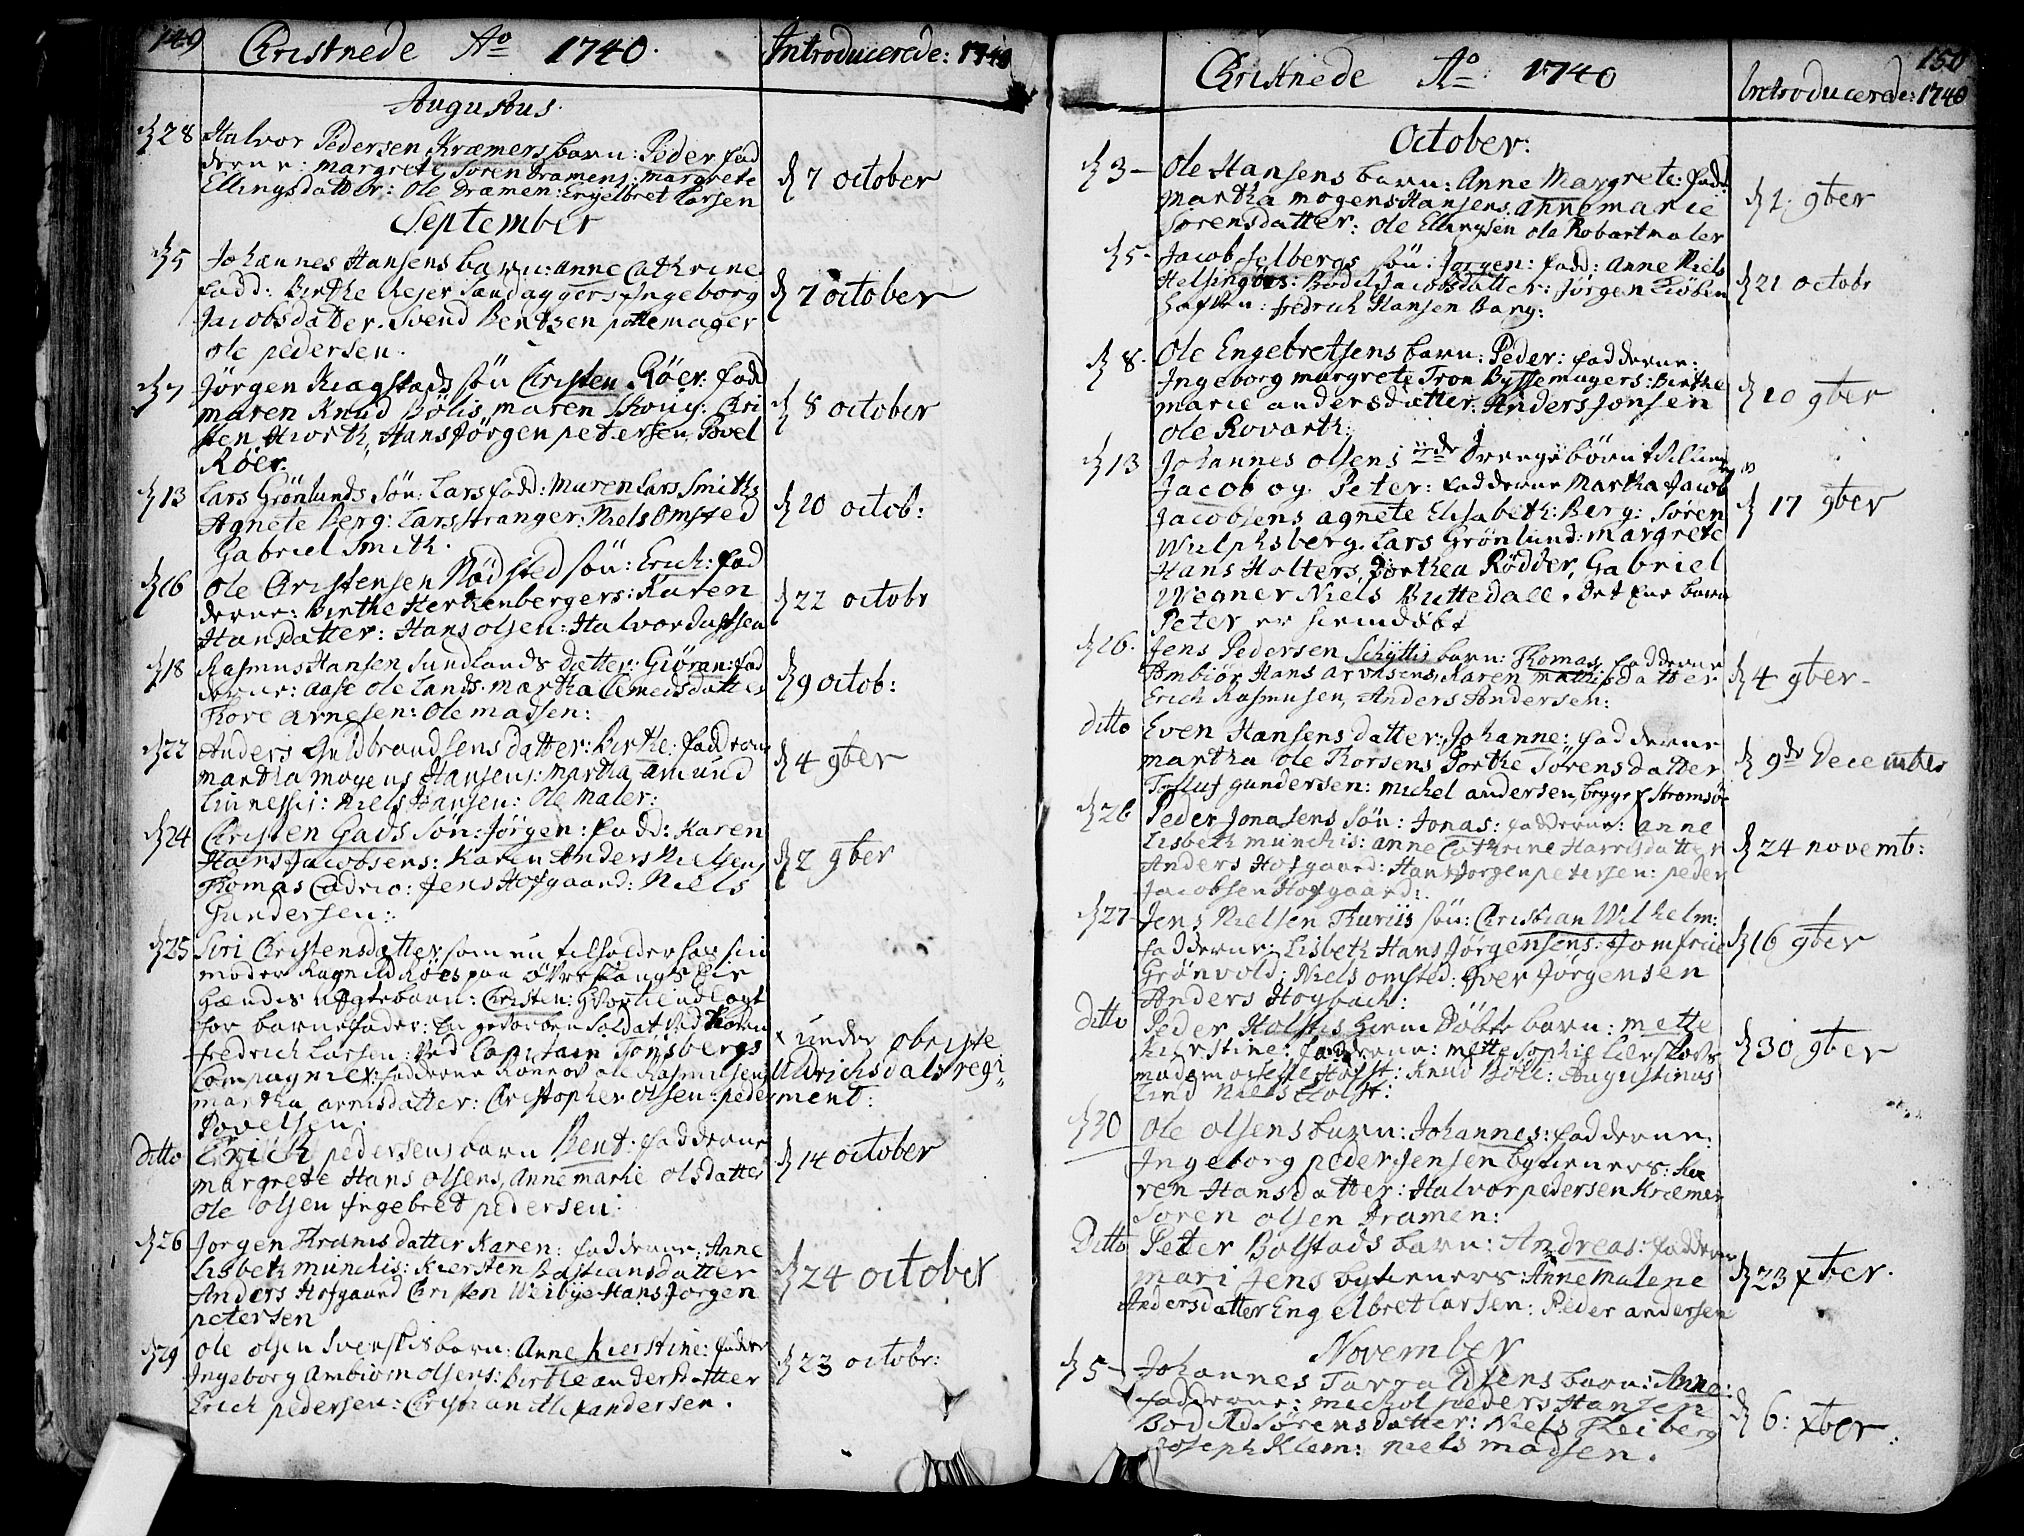 149 Christnede Ao 1740. Introducerede: 1740
Augustus.
28 Halvor Pedersen Kræmers barn: Peder fad
derne: margrete Søren Dramens: margrete
Ellingsdatter: Ole Dramen: Engelbret Larsen
7 october
September
5 Johannes Hansens barn: anne Cathrine
fadd: Birthe Rejer Ingeborg
Jacobsdatter. Svend Bentsen pottemager
ole pedersen.
7 october
7 Jørgen Kiagstads søn Christen Röer: fad
maren Knud Bölis, maren Chri
sten Hiorth, Hans Jörgen petersen, Povel
Röer.
8 october
13 Lars Grönlunds Søn: Lars fadd: Maren Lars Smiths
Agnete Berg: Lars Stranger: Niels Omsted
Gabriel Smith.
20 octob:
16 Ole Christensen Rödsted søn: Erich: fad
derne: Birthe Herkenbergers: Karen
Hansdatter: Hans olsen: Halvor Justsen
22 octobr
18 Rasmus Hansen Sundlands datter: Giöran: fad
derne: Aase Ole Lands. martha Clemedsdatter
Thore arnesen: Ole madsen:
9 octob:
22 Anders Guldbrandsens datter: Birthe: faddern
martha mogens Hansens: Martha amund
Linnessis: Niels Hansen: Ole maler:
4 9ber
24 Christen Gads Søn: Jörgen: fadd: Karen
Hans Jacobsens: Karen Anders Nielsens
Thomas Cadrio: Jens Hofgaard: Niels
Gundersen:
2 9ber
25 Siri Christensdatter som nu tilholder hos sin
moder Ragnild Röes paa
Hendes ugtebarn: Christen: udlagt
for barnefader: En soldat ved
fredrich Larsen: ved Capitain Tönsbergs
Compagnie x: fadderne Ronnov ole Rasmusens
martha arnisdatter: Christopher olsen: peder
Povelsen.
x under obriste
Uldrichsdals regi
ment:
ditto Erich pedersens barn Bent. fadderne
margrete Hans olsens, Anne marie olsdatter
ole olsen Ingebret pedersen:
14 october
26 Jorgen datter Karen: fadderne: Anne
Lisbeth munchis: Kiersten Bastiansdatter
Anders Hofgaard Christen Weibye Hans Jorgen
petersen
24 october
29 ole olsen Svenskis barn: Anne Kierstine: fadder
Ingeborg Ambiörn olsens: Birthe andersdatter
Erich pedersen: Christian Alexandersen.
23 octobr:
150
Christnede Ao 1740 Introducerede: 1740
October:
3 Ole Hansens barn: Anne Margrete: fadd
Martha mogens Hansens. anne marie
Sørensdatter: ole Ellingsen ole Robartmaler
2 9ber
5 Jacob Selbergs søn: Jorgen: fadd: Anne Niels
Helsingörs: Bodil Jacobsdatter: Jörgen Kiöben
hafn: fredrich Hansen Bang:
21 octobr
8 Ole Engebretsens barn: Peder: fadderne:
Ingeborg margrete Tron Byssemagers: Birthe
marie andersdatter: Anders Jonsen
ole Rovarth.
20 9ber
13 Johannes olsens 2de Drengebörn
Jacob og Peter: fadderne Martha Jacob
Jacobsens agnete Elisabeth: Berg: Søren
Wulphsberg. Lars Grönlund: margrete
Hans Holters, Dorthea Rödder, Gabriel
Wegner Niels Buttedall. Det Ene barn
Peter er hiemdöbt
17 9ber
26. Jens Pedersen Schyttis barn: Thomas. fadderne
Ambiör Hans arensens, Karen mathisdatter
Erich Rasmusen, Anders Andersen:
4 9ber
ditto Even Hansens datter: Johanne: fadderne
martha ole Thorsens Dorthe Sörensdatter
Tolluf gundersen: michel andersen, begge Strømsø
9de December
26 Peder Jonasens søn: Jonas: fadderne: anne
Lisbeth munchis: anne Cathrine Harrisdatter
Anders Hofgaard: Hans Jorgen petersen: peder
Jacobsen Hofgaard:
24 novemb:
27 Jens Nielsen Thuriis søn: Christian Wilhelm:
fadderne: Lisbeth Hans Jörgensens: Jomfrue
Grönvold: Niels omsted: Iver Jörgensen
Anders Hoybach:
16 9ber
ditto Peder Holstis hiem Döbte barn: mette
Kierstine: fadderne: mette Sophie
mademoiselle Holst: Knud Böli: Augustinus
Lind Niels Holst:
30 9ber
30 Ole olsens barn: Johannes: fadderne:
Ingeborg peder Jensen bytieners: Ka
ren Hansdatter: Halvor pedersen Kræmer
Soren olsen Dramen:
Ditto Petter Bolstads barn: Andreas: faddern
mari Jens bytieners: Anne Malene
Andersdatter Engelbret Larsen: Peder andersen
23 xber.
November
5 Johannes Tarraldsens barn: Anne:
fadderne: michel peders Hansen
Bodild Sörensdatter: Niels Fleiberg
Joseph Klem: Niels madsen.
6: xber.